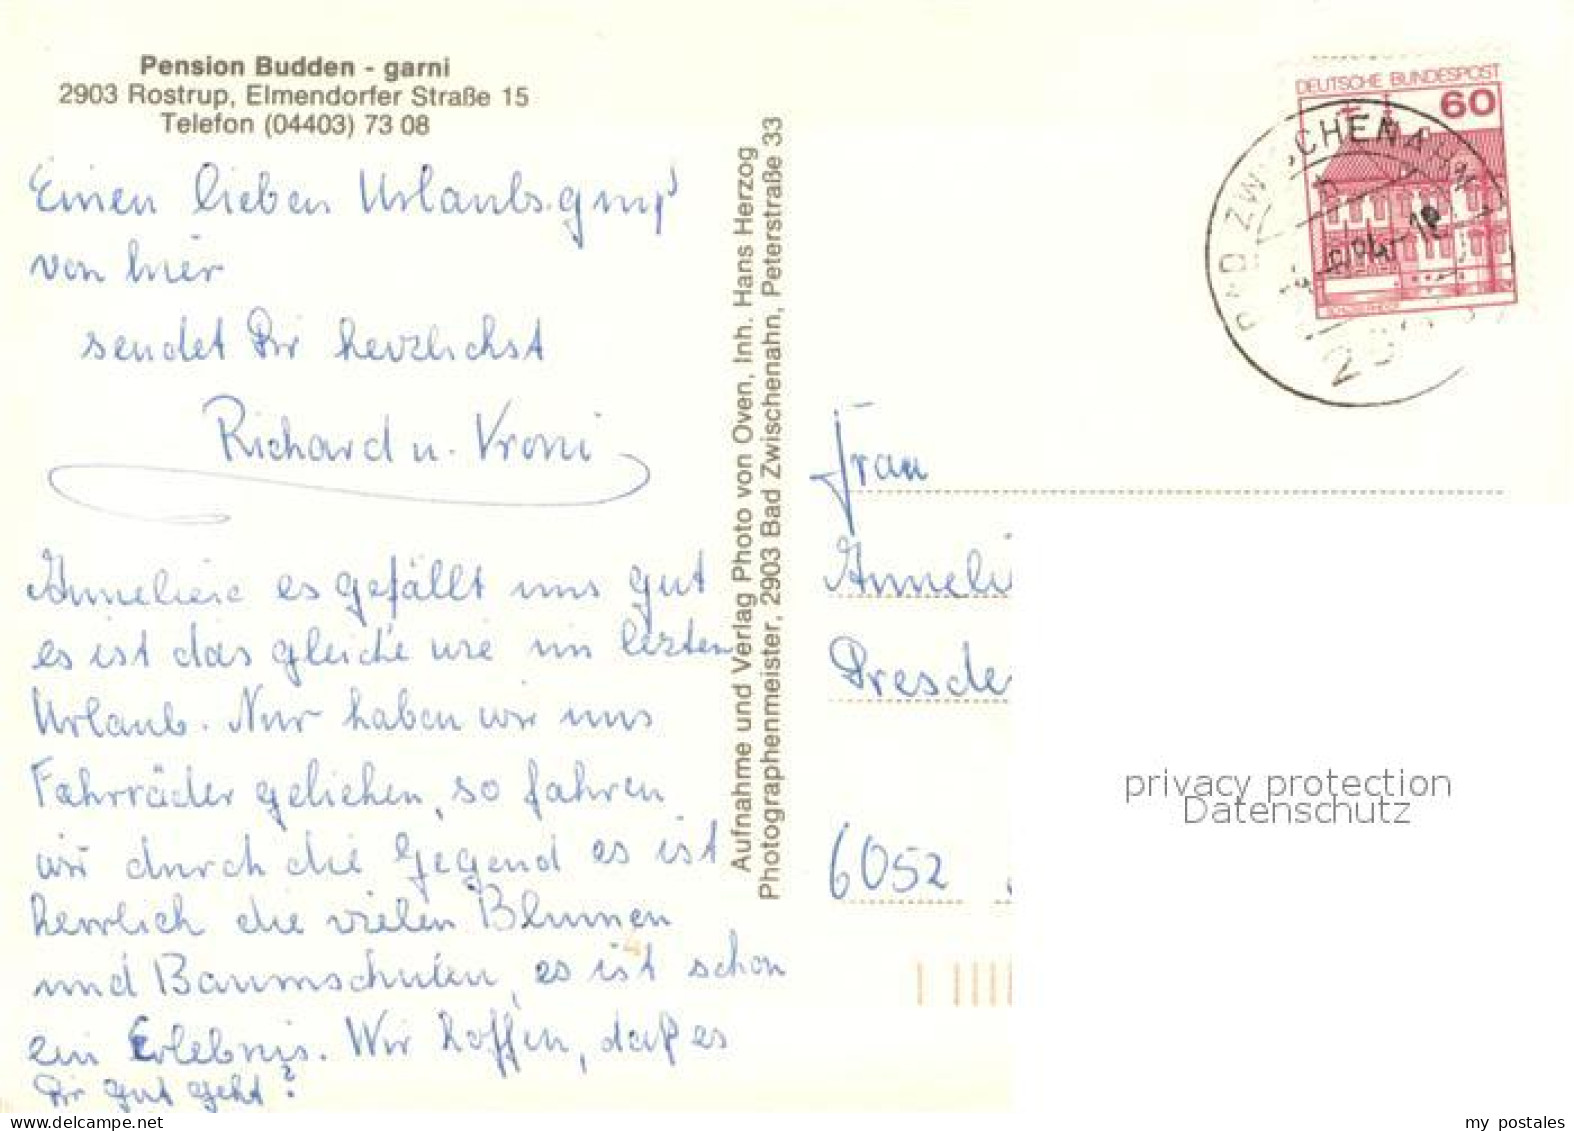 Pension Budden - garni
2903 Rostrup, Elmendorfer Straße 15
Telefon (04403) 73 08
Einen lieben Urlaubsgruß
von hier
sendet Dir herzlichst
Richard u. Vroni
Anneliese es gefällt uns gut
es ist das gleiche wie im lezten
Urlaub. Nur haben wir uns
Fahrräder geliehen, so fahren
wir durch die Gegend es ist
herrlich die vielen Blumen
und Baumschulen, es ist schon
ein Erlebnis. Wir hoffen, daß es
Dir gut geht?
Aufnahme und Verlag Photo von Oven, Inh. Hans Herzog
Photographenmeister, 2903 Bad Zwischenahn, Peterstraße 33
DEUTSCHE BUNDESPOST
60
BAD ZWISCHENAHN
Frau
Anneli
Dresde
6052
privacy protection
Datenschutz
my postales